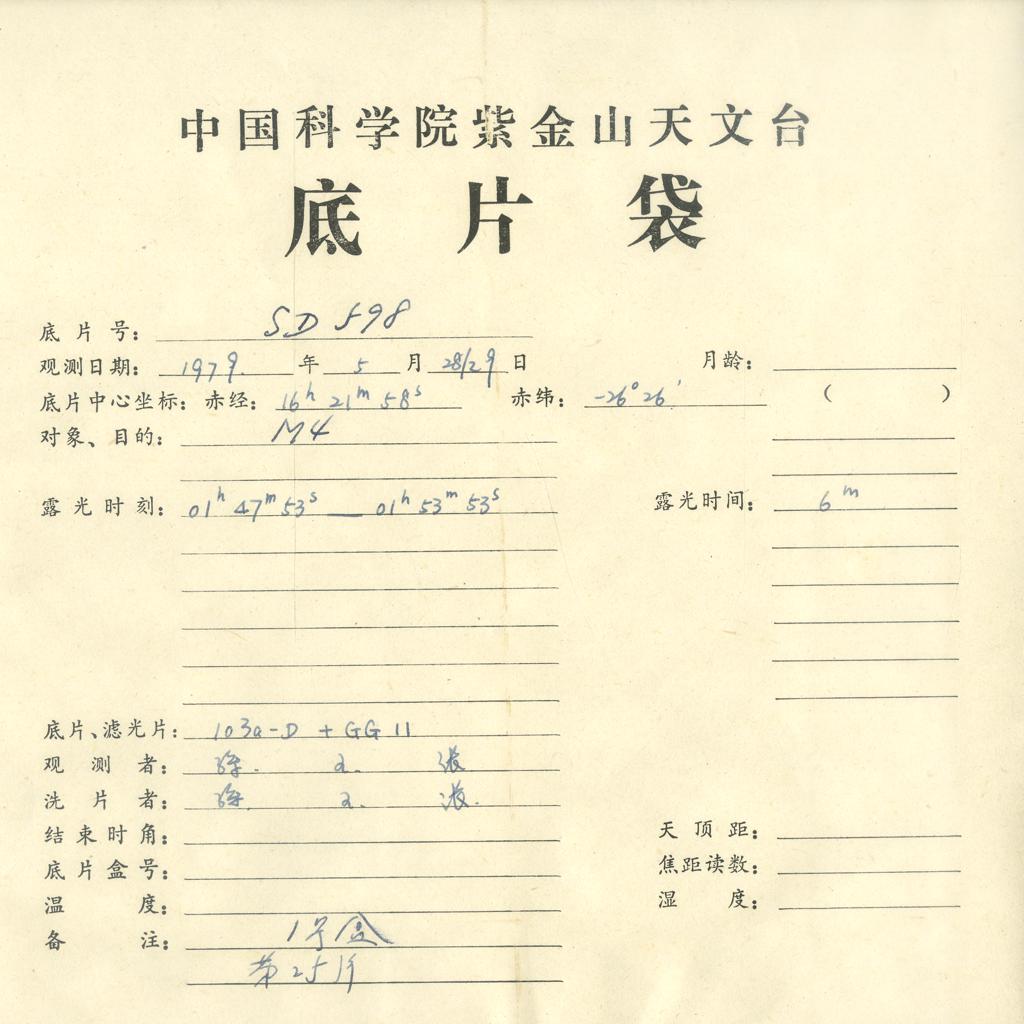 中国科学院紫金山天文台
底片袋
底片号: SD 598
观测日期: 1979. 年 5 月 28/29 日 月龄:
底片中心坐标: 赤经: 16h 21m 58s 赤纬: -26° 26′ ( )
对象、目的: M4
露光时刻: 01h 47m 53s — 01h 53m 53s 露光时间: 6m
底片、滤光片: 103a-D + GG 11
观测者: 张
洗片者: 张.
结束时角: 天顶距:
底片盒号: 焦距读数:
温度: 湿度:
备注: 1号盒
第25片